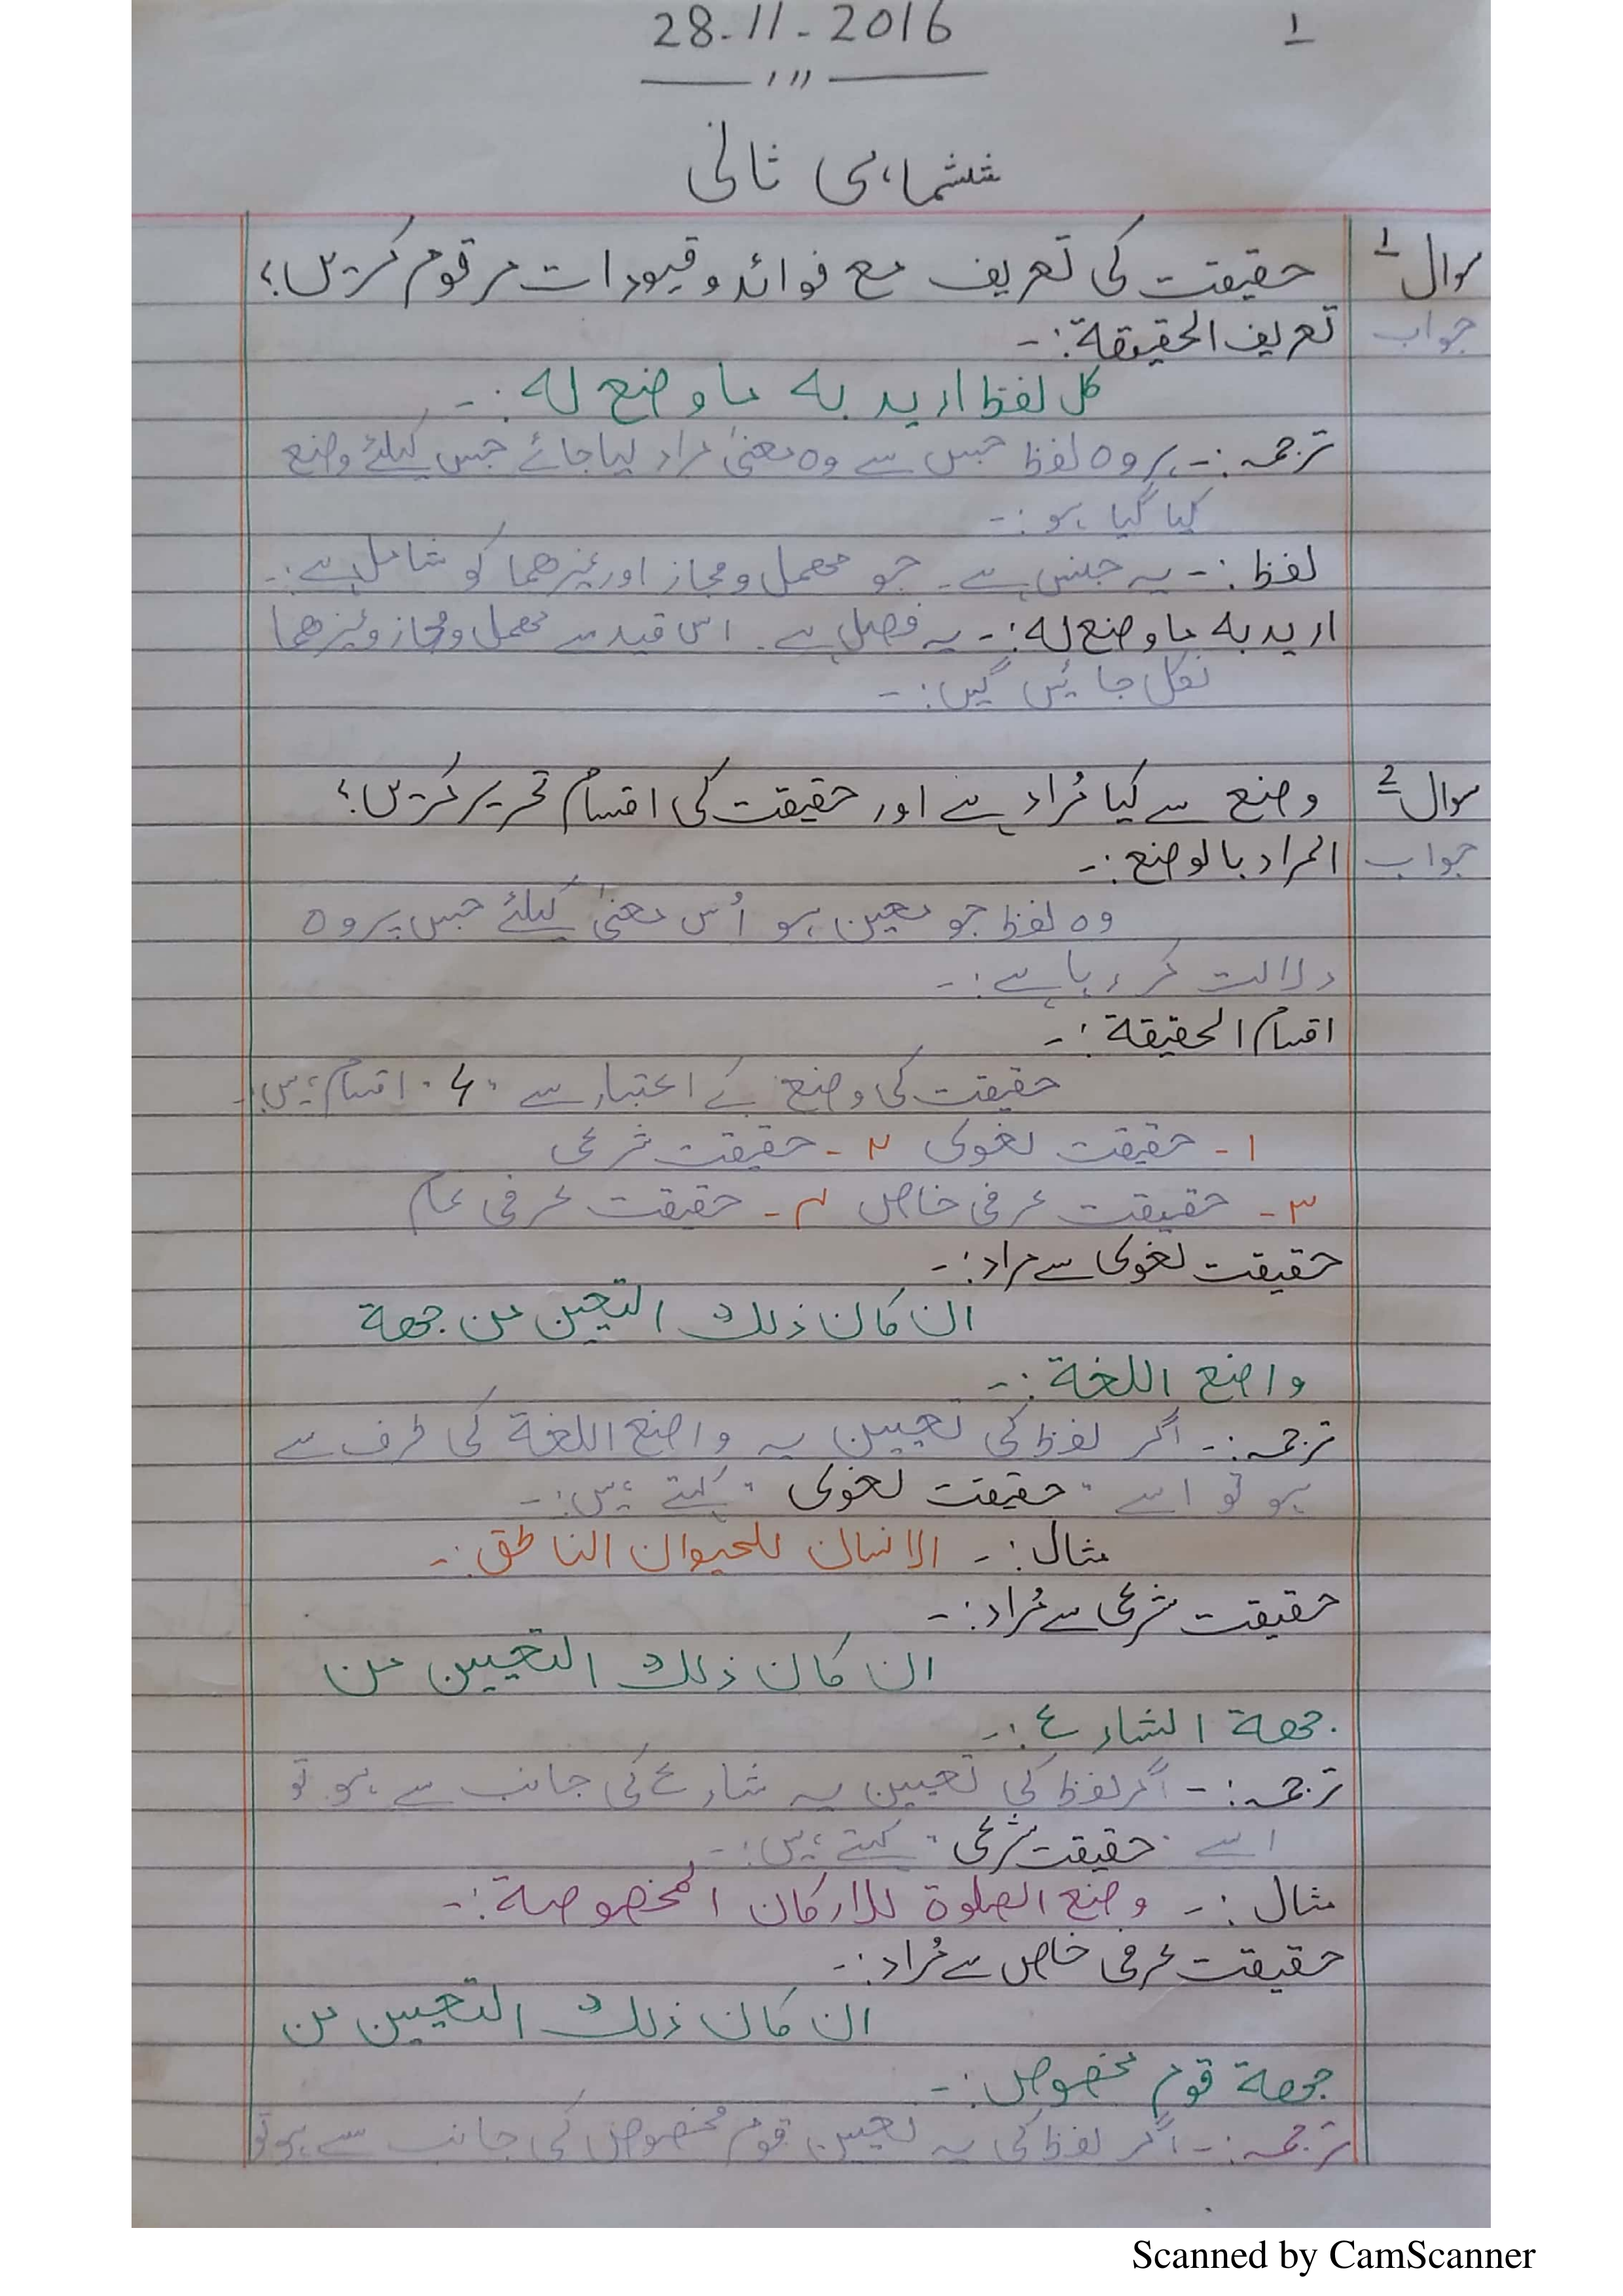 28-11-2016
۱
ششماہی ثانی
سوال 1 حقیقت کی تعریف مع فوائد و قیودات مرقوم کریں؟
جواب تعریف الحقیقة:-
کل لفظ ارید به ما وضع له:-
ترجمہ:- ہر وہ لفظ جس سے وہ معنیٰ مراد لیا جائے جس کیلئے وضع
کیا گیا ہو:-
لفظ:- یہ جنس ہے۔ جو مھمل و مجاز اور غیرھما کو شامل ہے:-
ارید به ما وضع له:- یہ فصل ہے۔ اس قید سے مھمل و مجاز وغیرھما
نکل جائیں گیں:-
سوال 2 وضع سے کیا مُراد ہے اور حقیقت کی اقسام تحریر کریں؟
جواب المراد بالوضع:-
وہ لفظ جو معین ہو اُس معنیٰ کیلئے جس پر وہ
دلالت کر رہا ہے:-
اقسام الحقیقة:-
حقیقت کی وضع کے اعتبار سے "۴" اقسام ہیں:-
۱- حقیقت لغوی ۲- حقیقت شرعی
۳- حقیقت عرفی خاص ۴- حقیقت عرفی عام
حقیقت لغوی سے مراد:-
ان کان ذلك التعین من جهة
واضع اللغة:-
ترجمہ:- اگر لفظ کی تعیین یہ واضع اللغة کی طرف سے
ہو تو اسے "حقیقت لغوی" کہتے ہیں:-
مثال:- الانسان للحیوان الناطق:-
حقیقت شرعی سے مُراد:-
ان کان ذلك التعیین من
جهة الشارع:-
ترجمہ:- اگر لفظ کی تعیین یہ شارع کی جانب سے ہو تو
اسے "حقیقت شرعی" کہتے ہیں:-
مثال:- وضع الصلوة للارکان المخصوصة:-
حقیقت عرفی خاص سے مُراد:-
ان کان ذلك التعیین من
جهة قوم مخصوص:-
ترجمہ:- اگر لفظ کی یہ تعیین قوم مخصوص کی جانب سے ہو تو
Scanned by CamScanner